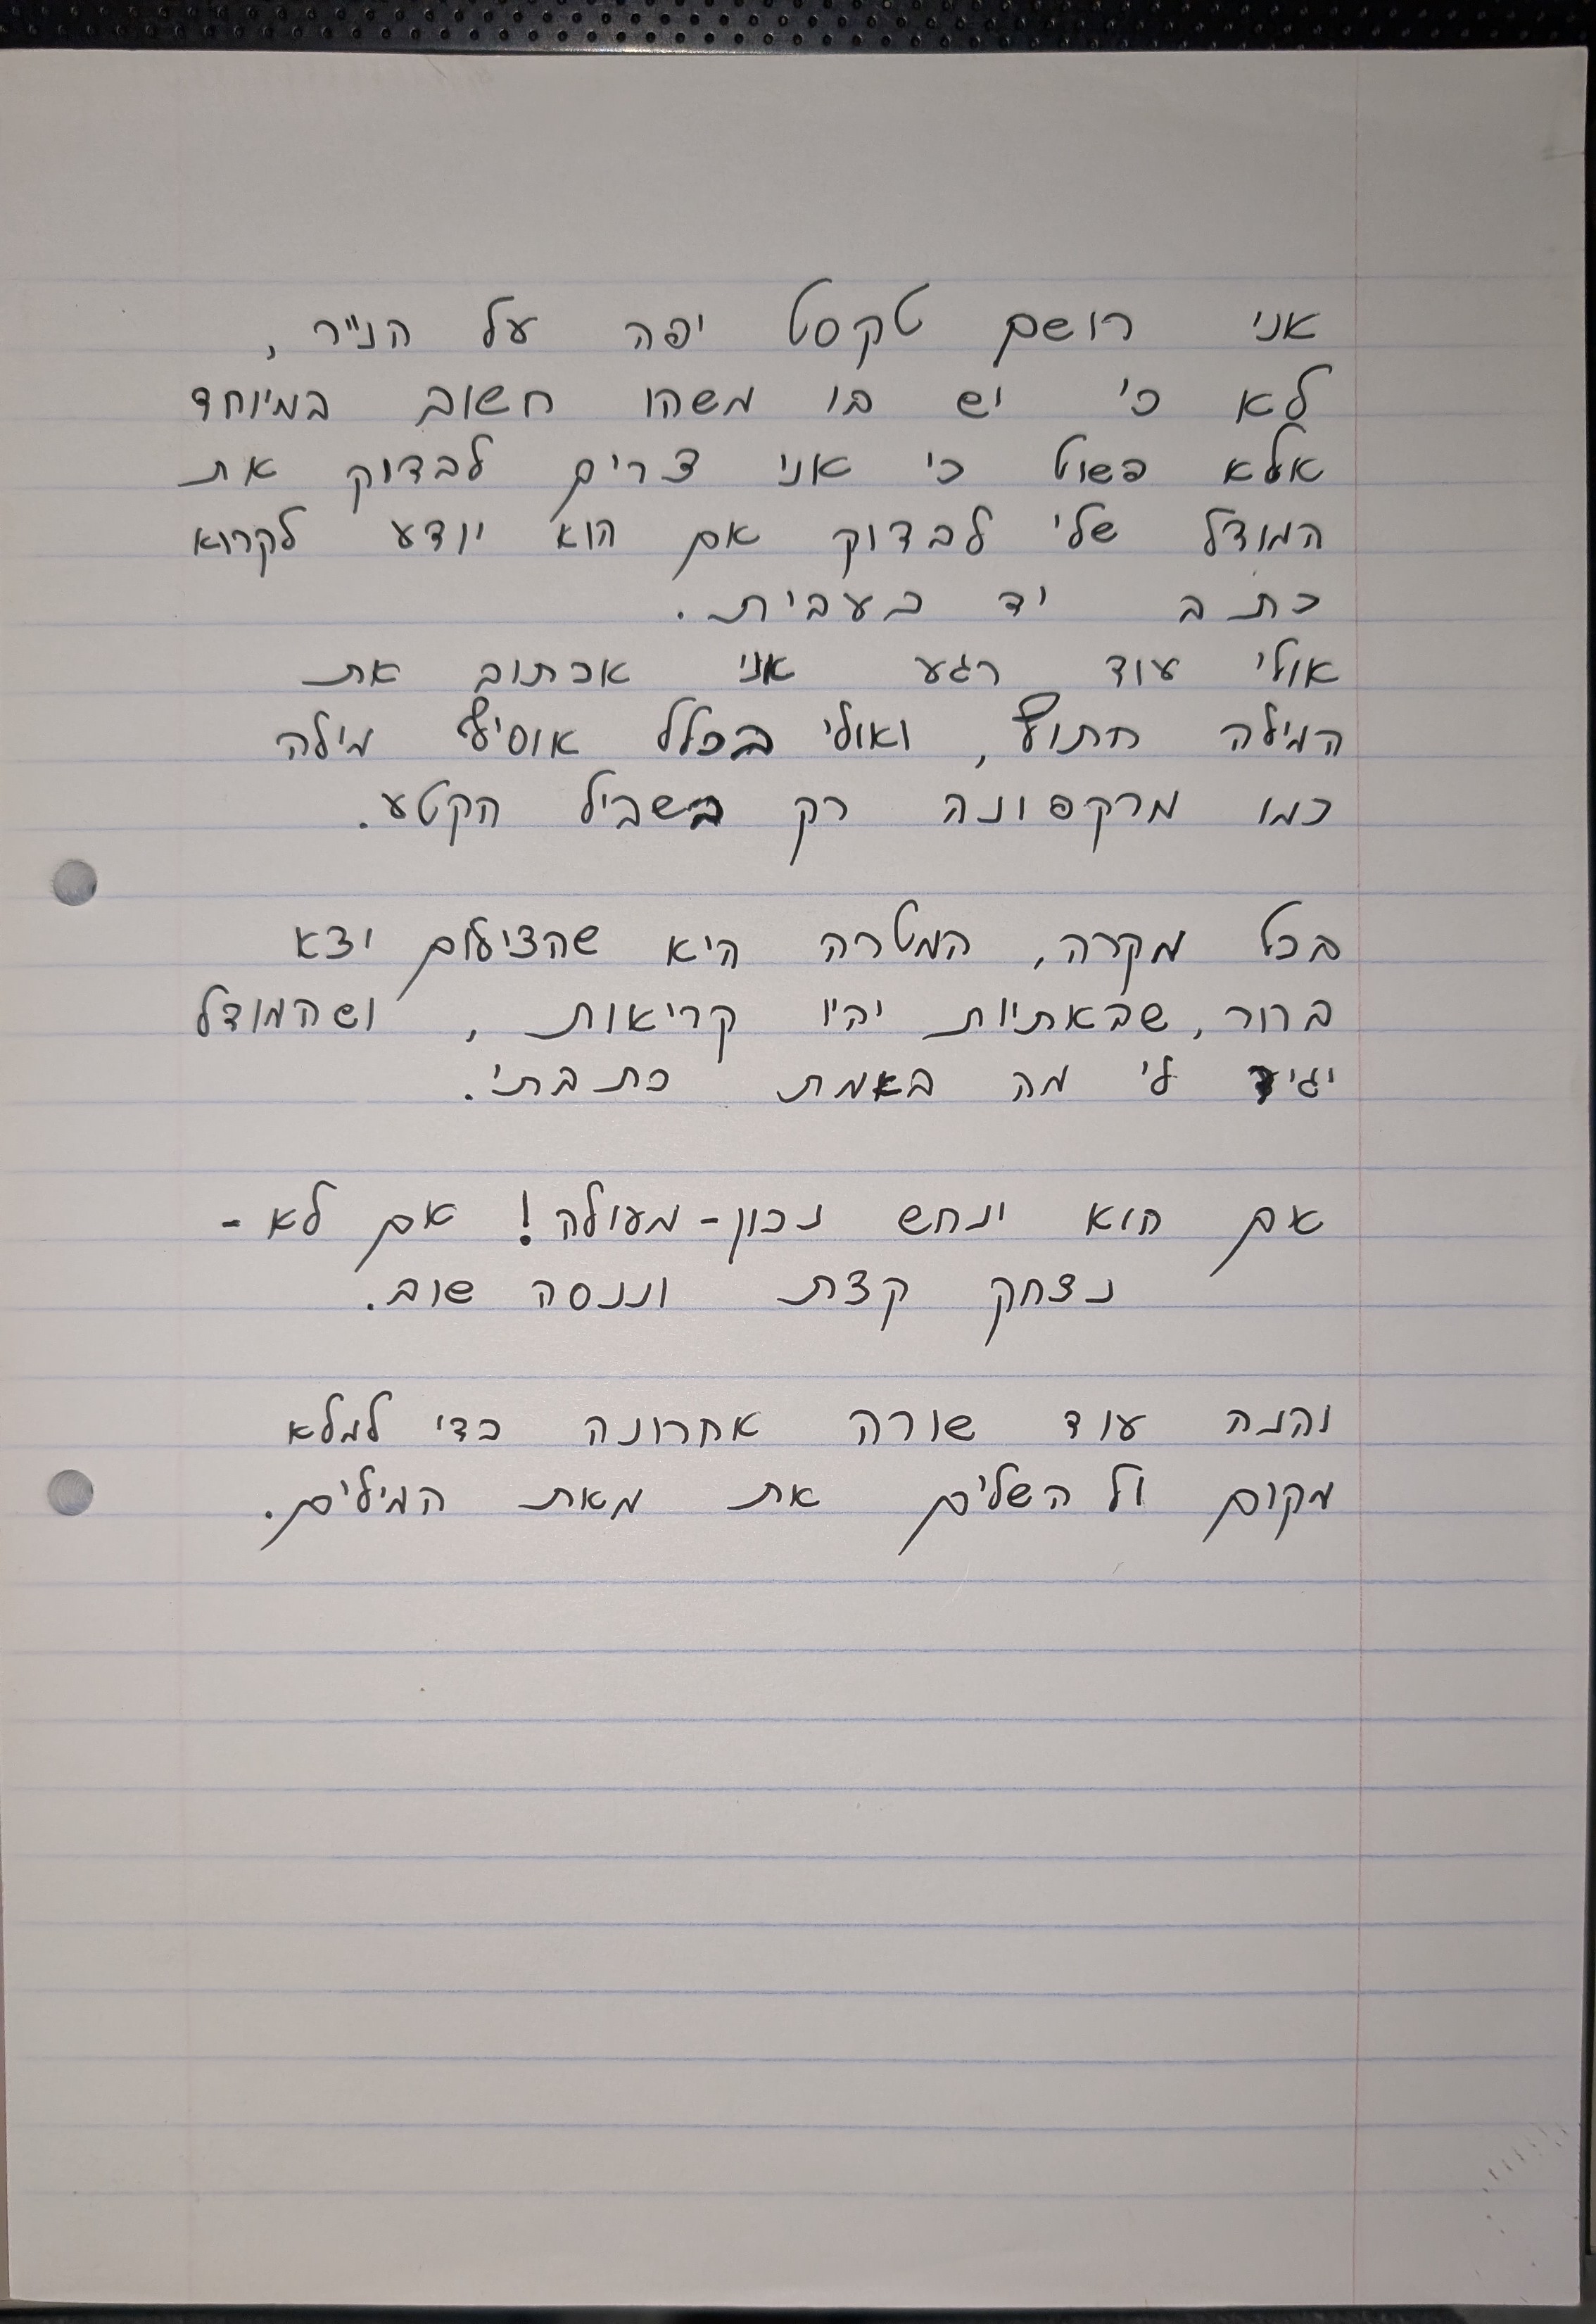 אני רושם טקסט יפה על הנייר,
לא כי יש בו משהו חשוב במיוחד
אלא פשוט כי אני צרים לבדוק את
המודל שלי לבדוק אם הוא יודע לקרוא
כתב יד בעבית.
אולי עוד רגע אני אכתוב את
המילה חתול, ואולי בכלל אוסיף מילה
כמו מרקפונה רק בשביל הקטע.
בכל מקרה, המטרה היא שהצילום יצא
ברור, שבאתיות יהיו קריאות, ושהמודל
יגיד לי מה באמת כתבתי.
אם הוא ינחש נכון - מעולה! אם לא -
נצחק קצת וננסה שוב.
והנה עוד שורה אחרונה כדי למלא
מקום ול השלים את מאת המילים.